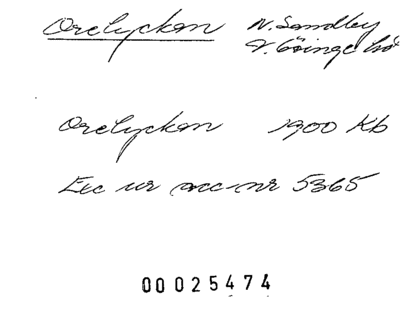 Orelyckan N. Sandby
V. Göinge hd
Orelyckan 1900 Kb
Exc ur acc-nr 5365
00025474